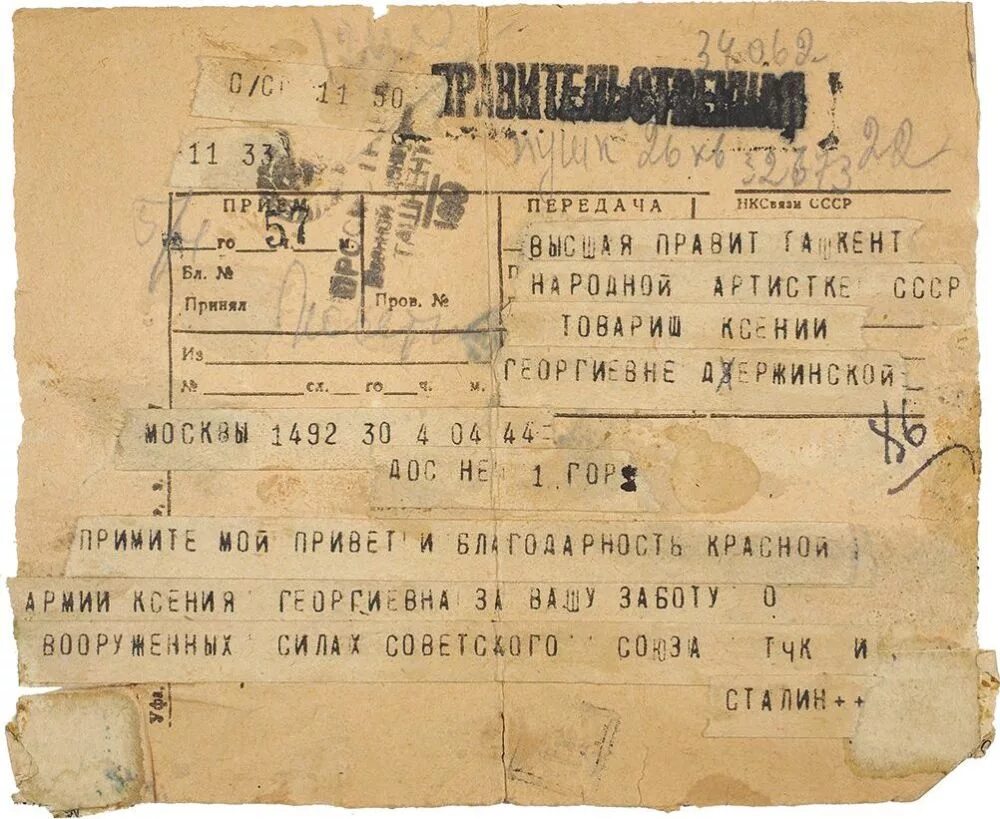 34062
О/СГ 11 50
ПРАВИТЕЛЬСТВЕННАЯ
11 33
26 кв 32673 22
57
ПРИЕМ
го 57 ч. м.
Бл. №
Принял
Пров. №
Из
№ сл. го ч. м.
ТАШКЕНТ
ПЕРЕДАЧА
НКСвязи СССР
ВЫСШАЯ ПРАВИТ ТАШКЕНТ
НАРОДНОЙ АРТИСТКЕ СССР
ТОВАРИШ КСЕНИИ
ГЕОРГИЕВНЕ ДЗЕРЖИНСКОЙ
МОСКВЫ 1492 30 4 04 44=
ДОС НЕМ 1 ГОР
ПРИМИТЕ МОЙ ПРИВЕТ И БЛАГОДАРНОСТЬ КРАСНОЙ
АРМИИ КСЕНИЯ ГЕОРГИЕВНА ЗА ВАШУ ЗАБОТУ О
ВООРУЖЕННЫХ СИЛАХ СОВЕТСКОГО СОЮЗА ТЧК И
СТАЛИН++
Уфа.